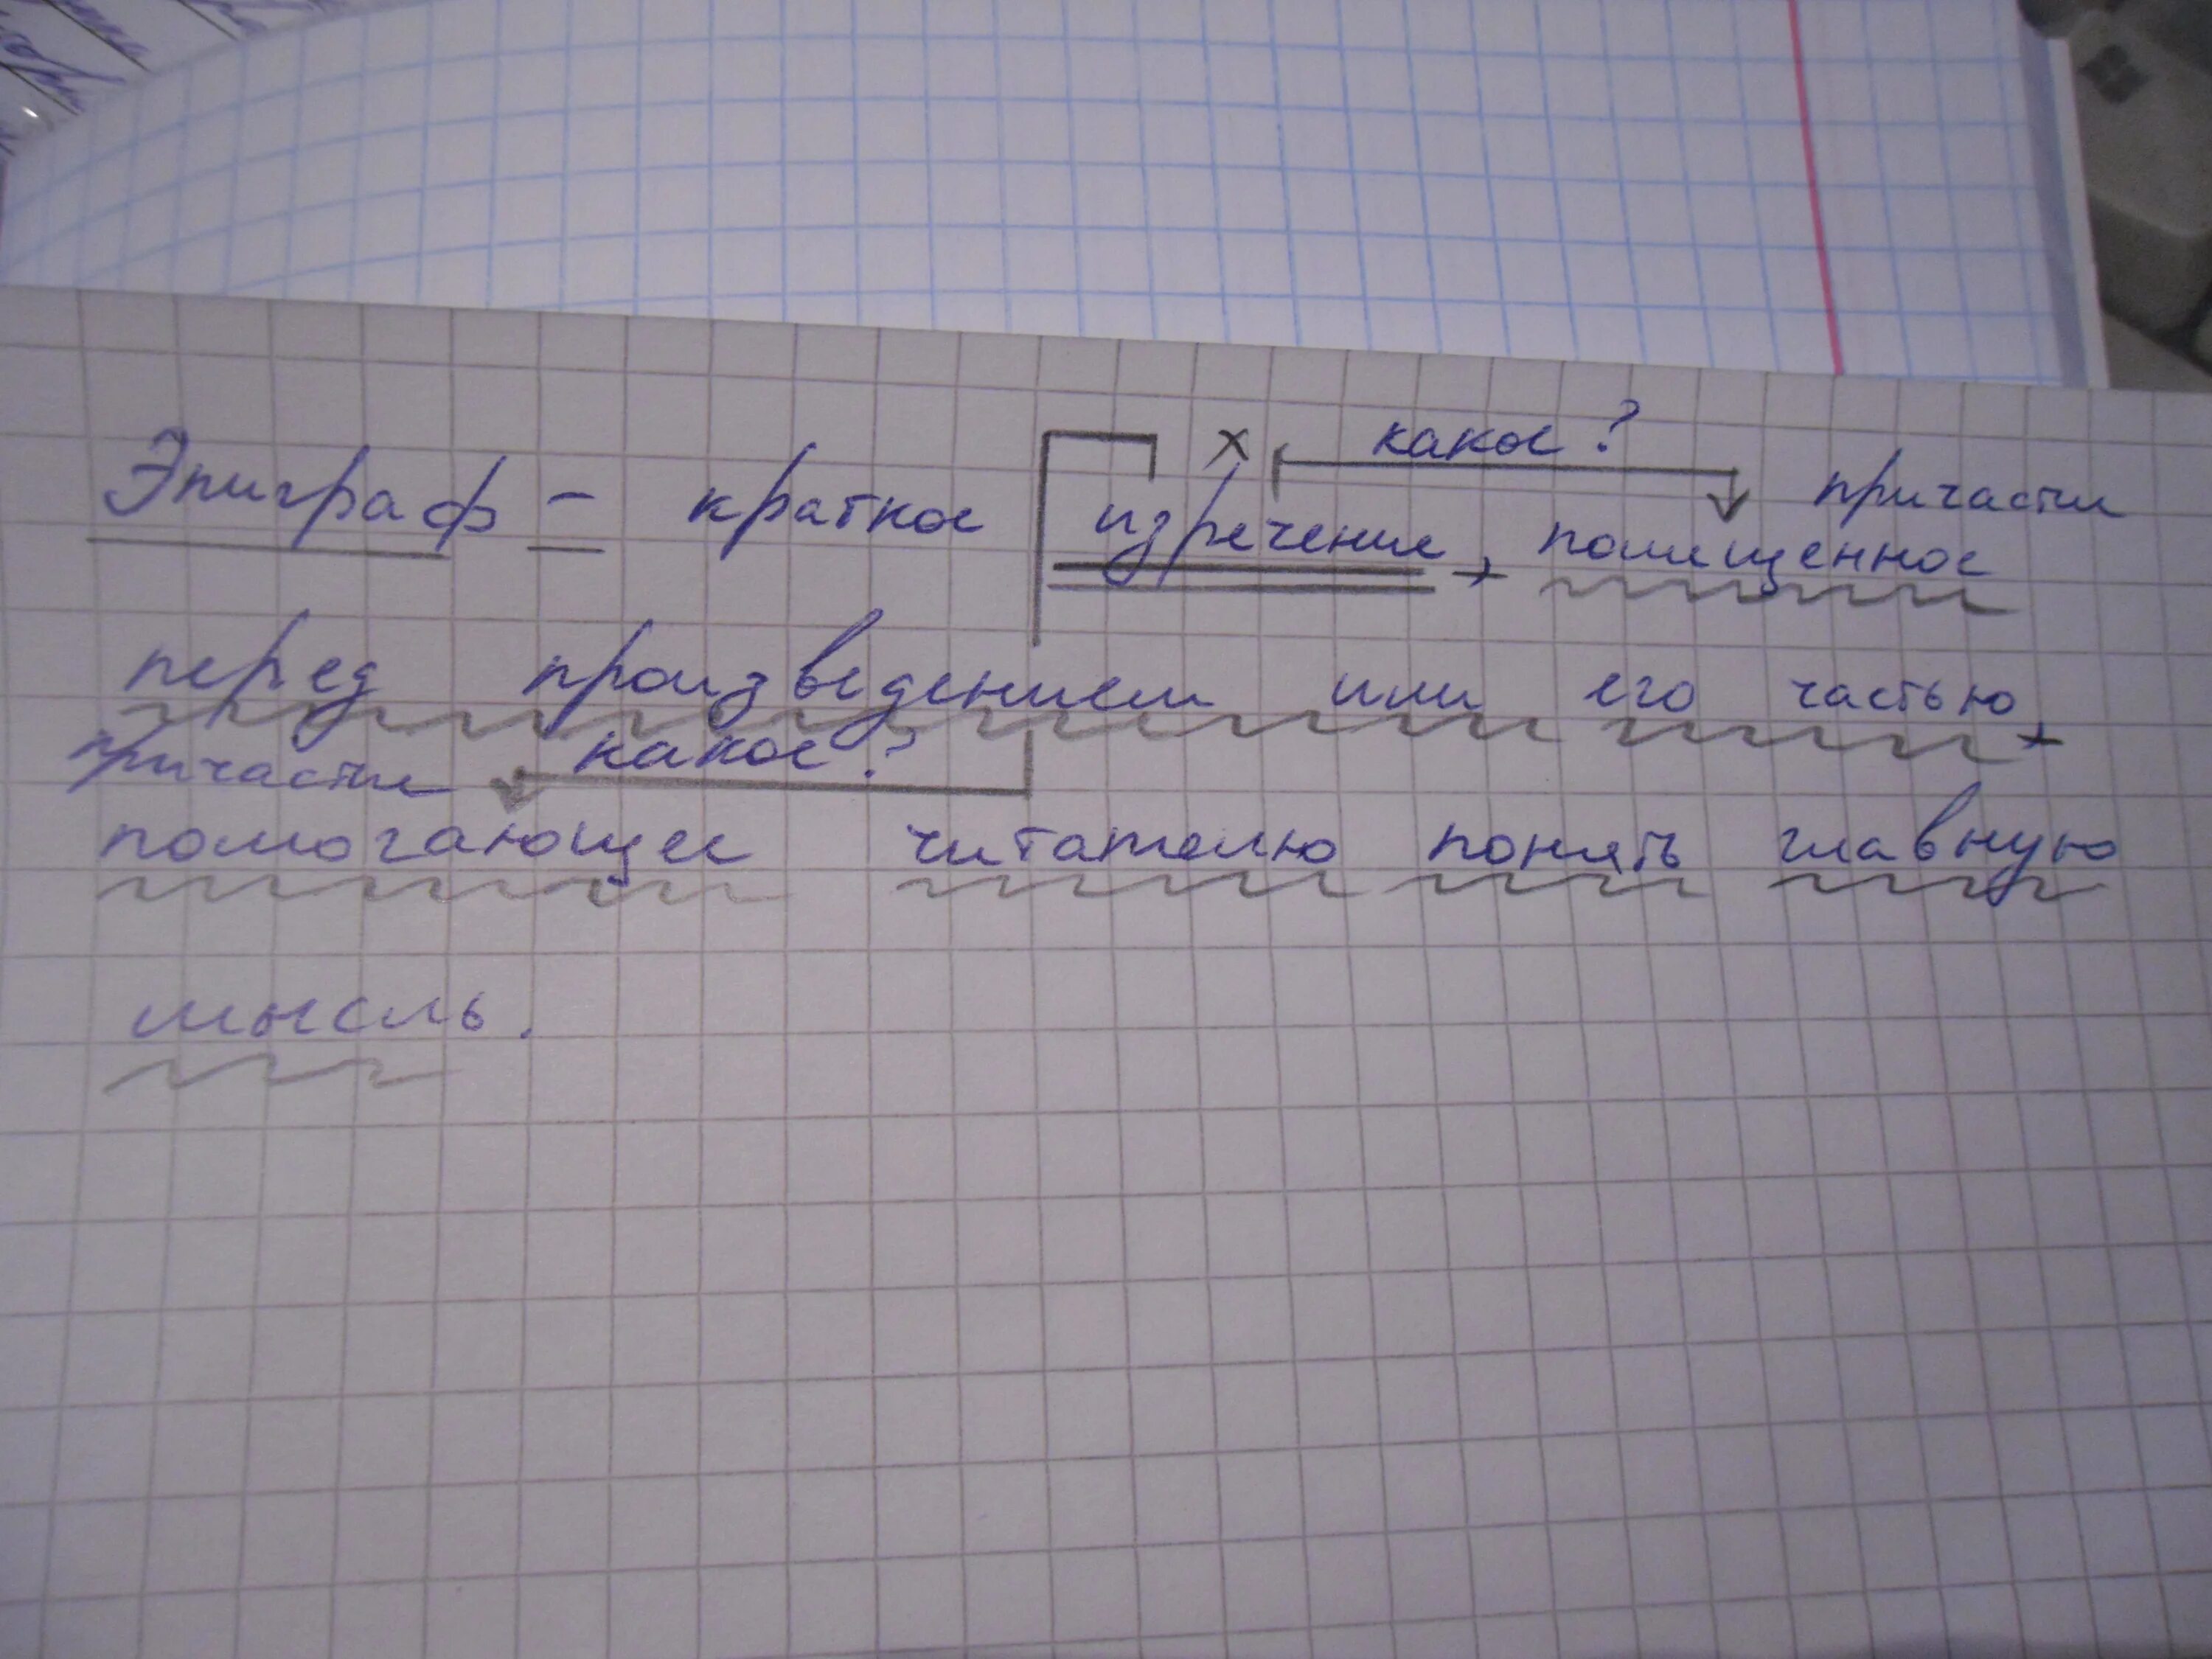 какое?
Эпиграф - краткое изречение, помещенное
перед произведением или его частью,
причастие какое?
помогающее читателю понять главную
мысль.